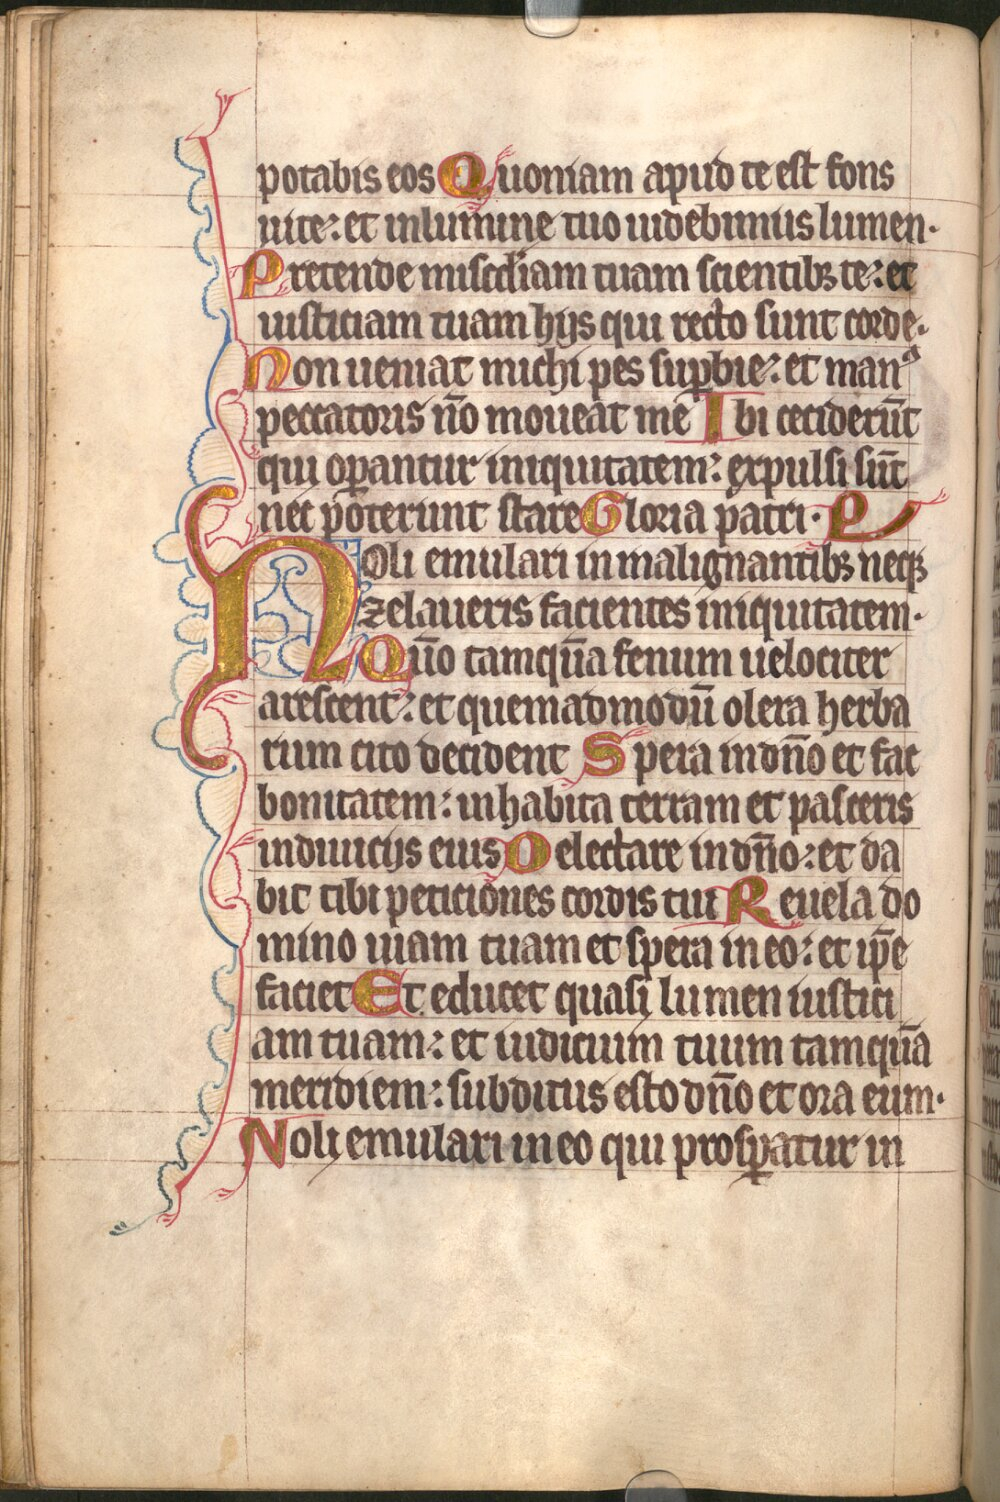 potabis eos Quoniam apud te est fons
uite: et inlumine tuo uidebimus lumen·
Pretende misc̄diam tuam scientibꝫ te: et
iusticiam tuam hijs qui recto sunt corde·
Non ueniat michi pes suꝑbie: et manꝰ
peccatoris nō moueat me Ibi ceciderūt
qui oꝑantur iniquitatem: expulsi sūt
nec poterunt stare Gloria patri· P
Noli emulari in malignantibꝫ neqꝫ
zelaueris facientes iniquitatem·
Qūo tamquā fenum uelociter
arescent: et quemadmodū olera herba
rum cito decident Spera in dn̄o et fac
bonitatem: inhabita terram et pasceris
indiuicijs eius Delectare in dn̄o: et da
bit tibi peticiones cordis tui Reuela do
mino uiam tuam et spera in eo: et ip̄e
faciet Et educet quasi lumen iustici
am tuam: et iudicium tuum tamquā
meridiem: subditus esto dn̄o et ora eum·
Noli emulari in eo qui prosꝑatur in